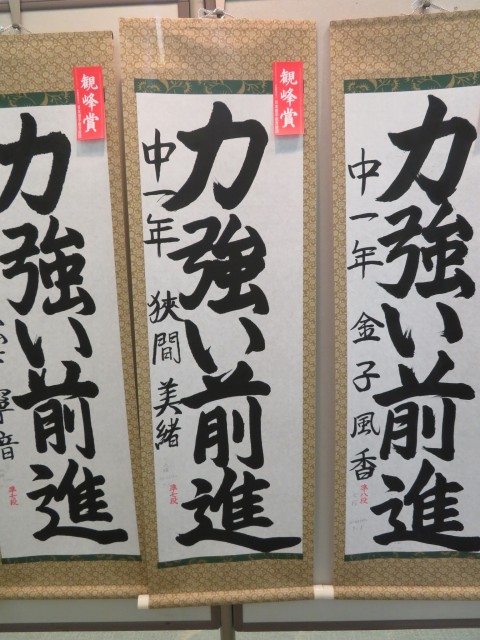 観峰賞
力強い前進
準七段
観峰賞
力強い前進
中一年 狭間美緒
準七段
力強い前進
中一年 金子風香
準八段